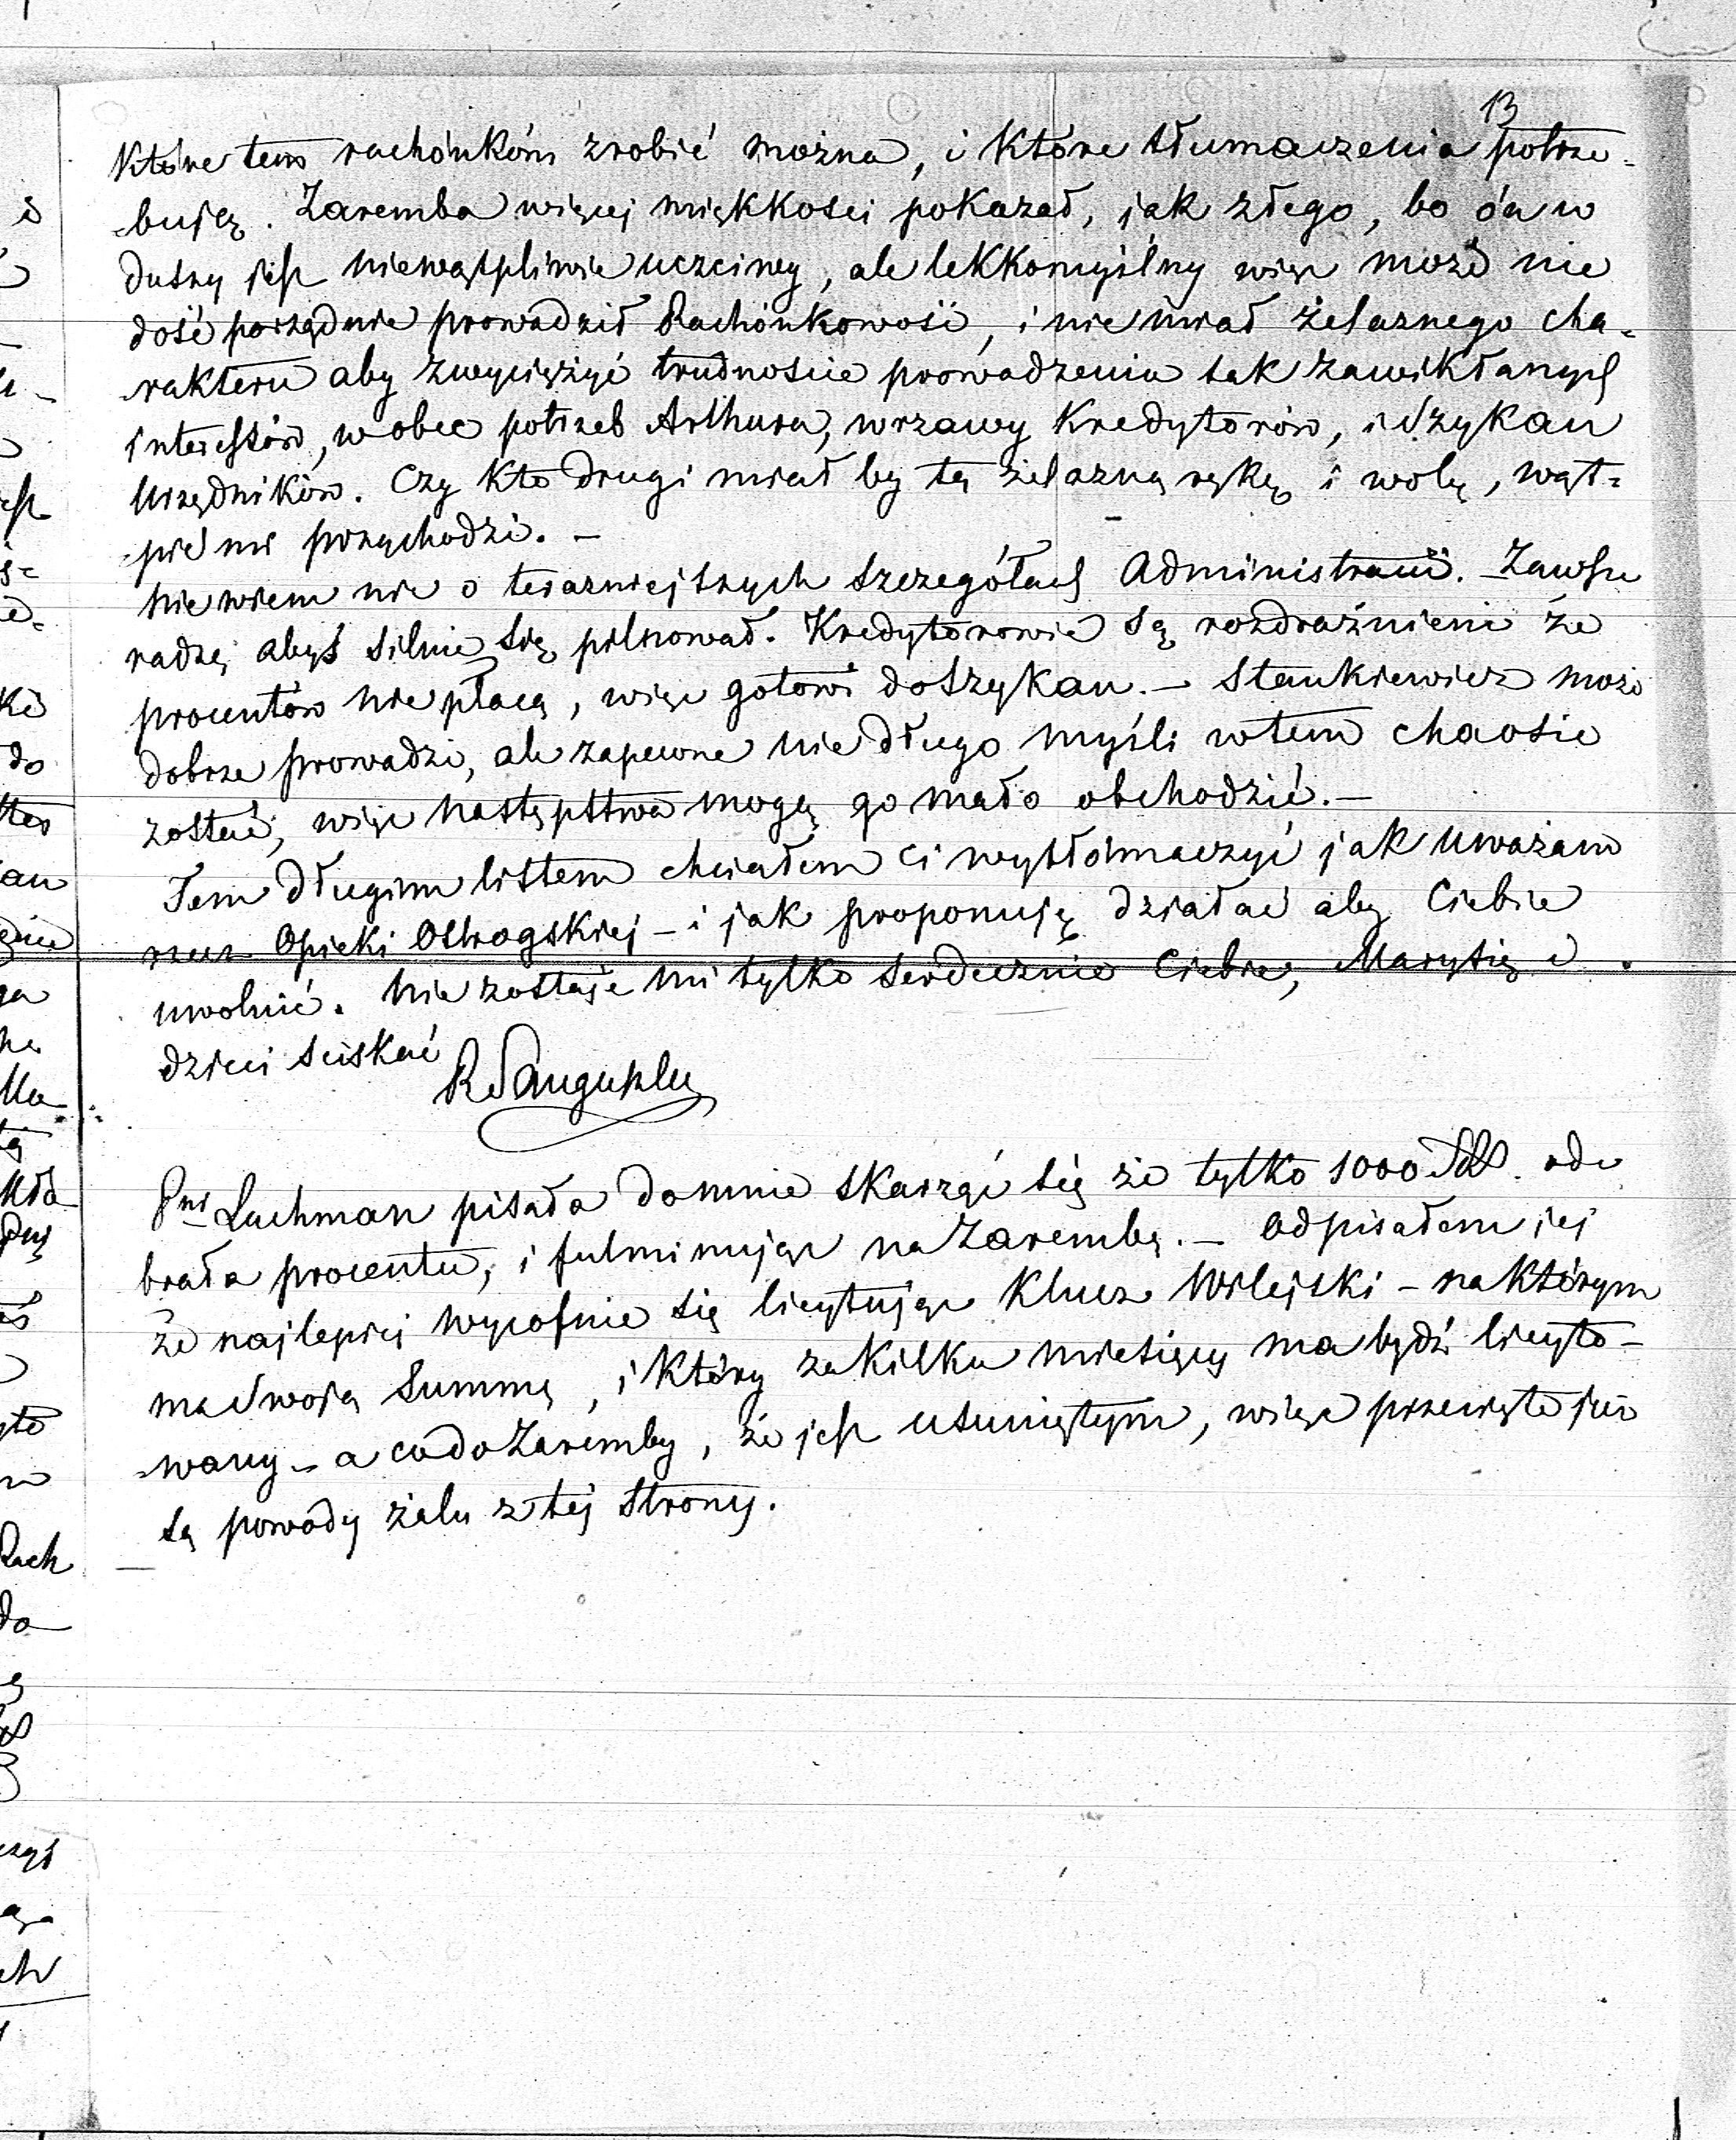 13
które tem rachónkóm zrobić można, i które tłumaczenia potrze-
-bują. Zaremba więcej miękkości pokazał, jak złego, bo ón w
duszy jest niewątpliwie uczciwy, ale lekkomyślny więc może nie
dość porządnie prowadził Rachónkowość, i nie miał żelaznego cha-
-rakteru aby zwyciężyć trudnoście prowadzenia tak zawikłanych
interessów, wobec potrzeb Arthura, wrzawy Kredytorów, i Szykan
Urzędników. Czy kto drugi miał by tą żelazną rękę i wolę, wąt-
-pić mi przychodzi. –
Nie wiem nic o teraźniejszych szczegółach Administracii. – Zawsze
radzę abyś silnie się pilnował. Kredytorowie są rozdraźnieni że
procentów nie płacą, więc gotowi do Szykan. – Stankiewicz może
dobrze prowadzi, ale zapewne nie długo myśli w tem chaosie
zostać, więc następstwa mogą go mało obchodzić. –
Tem długim listem chciałem ci wytłómaczyć jak uważam
rzecz Opieki Ostrogskiej – i jak proponuję działać aby Ciebie
uwolnić. Nie zostaje mi tylko serdecznie Ciebie, Marysię i
dzieci sciskać
R Sanguszko
Pni Lachman pisała do mnie skarżąć się że tylko 1000 ode
brała procentu, i fulminując na Zarembę. – Odpisałem jej
że najlepiej wycofnie się licytując Klucz Wilejski – na którym
ma swoją Summę, i który za kilka miesięcy ma bydź licyto-
-wany – a co do Zaremby, że jest usuniętym, więc przecięte już
są powody żalu z tej strony.